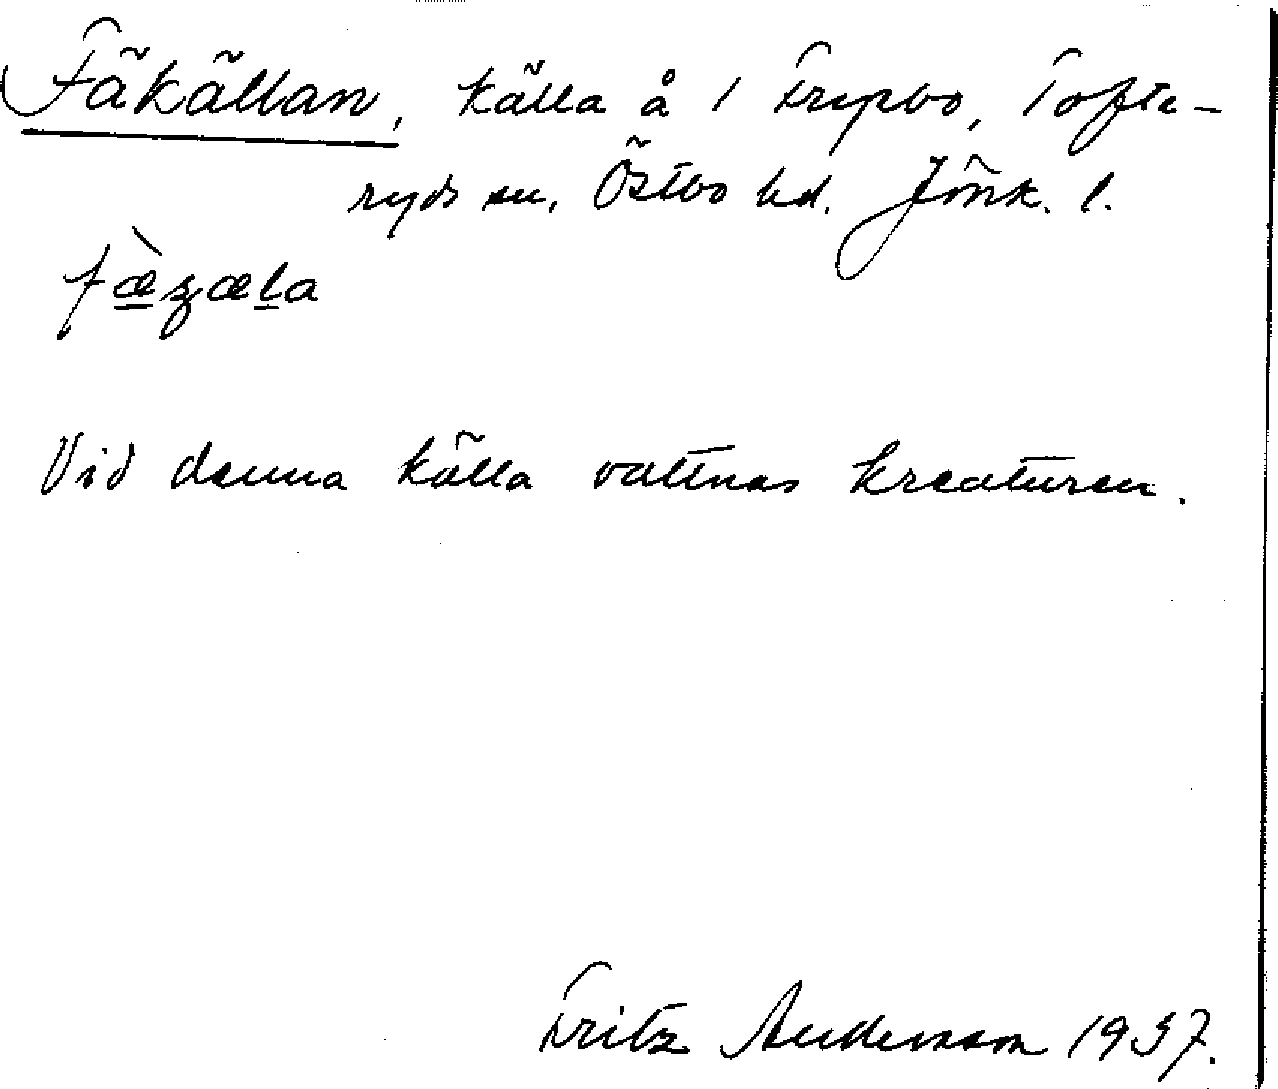 Fäkällan, källa å 1 Frypbo, Tofte-
ryds sn, Östbo hd. Jönk. l.
fæ̀ʒæla
Vid denna källa vattnas kreaturen.
Fritz Andersson 1937.